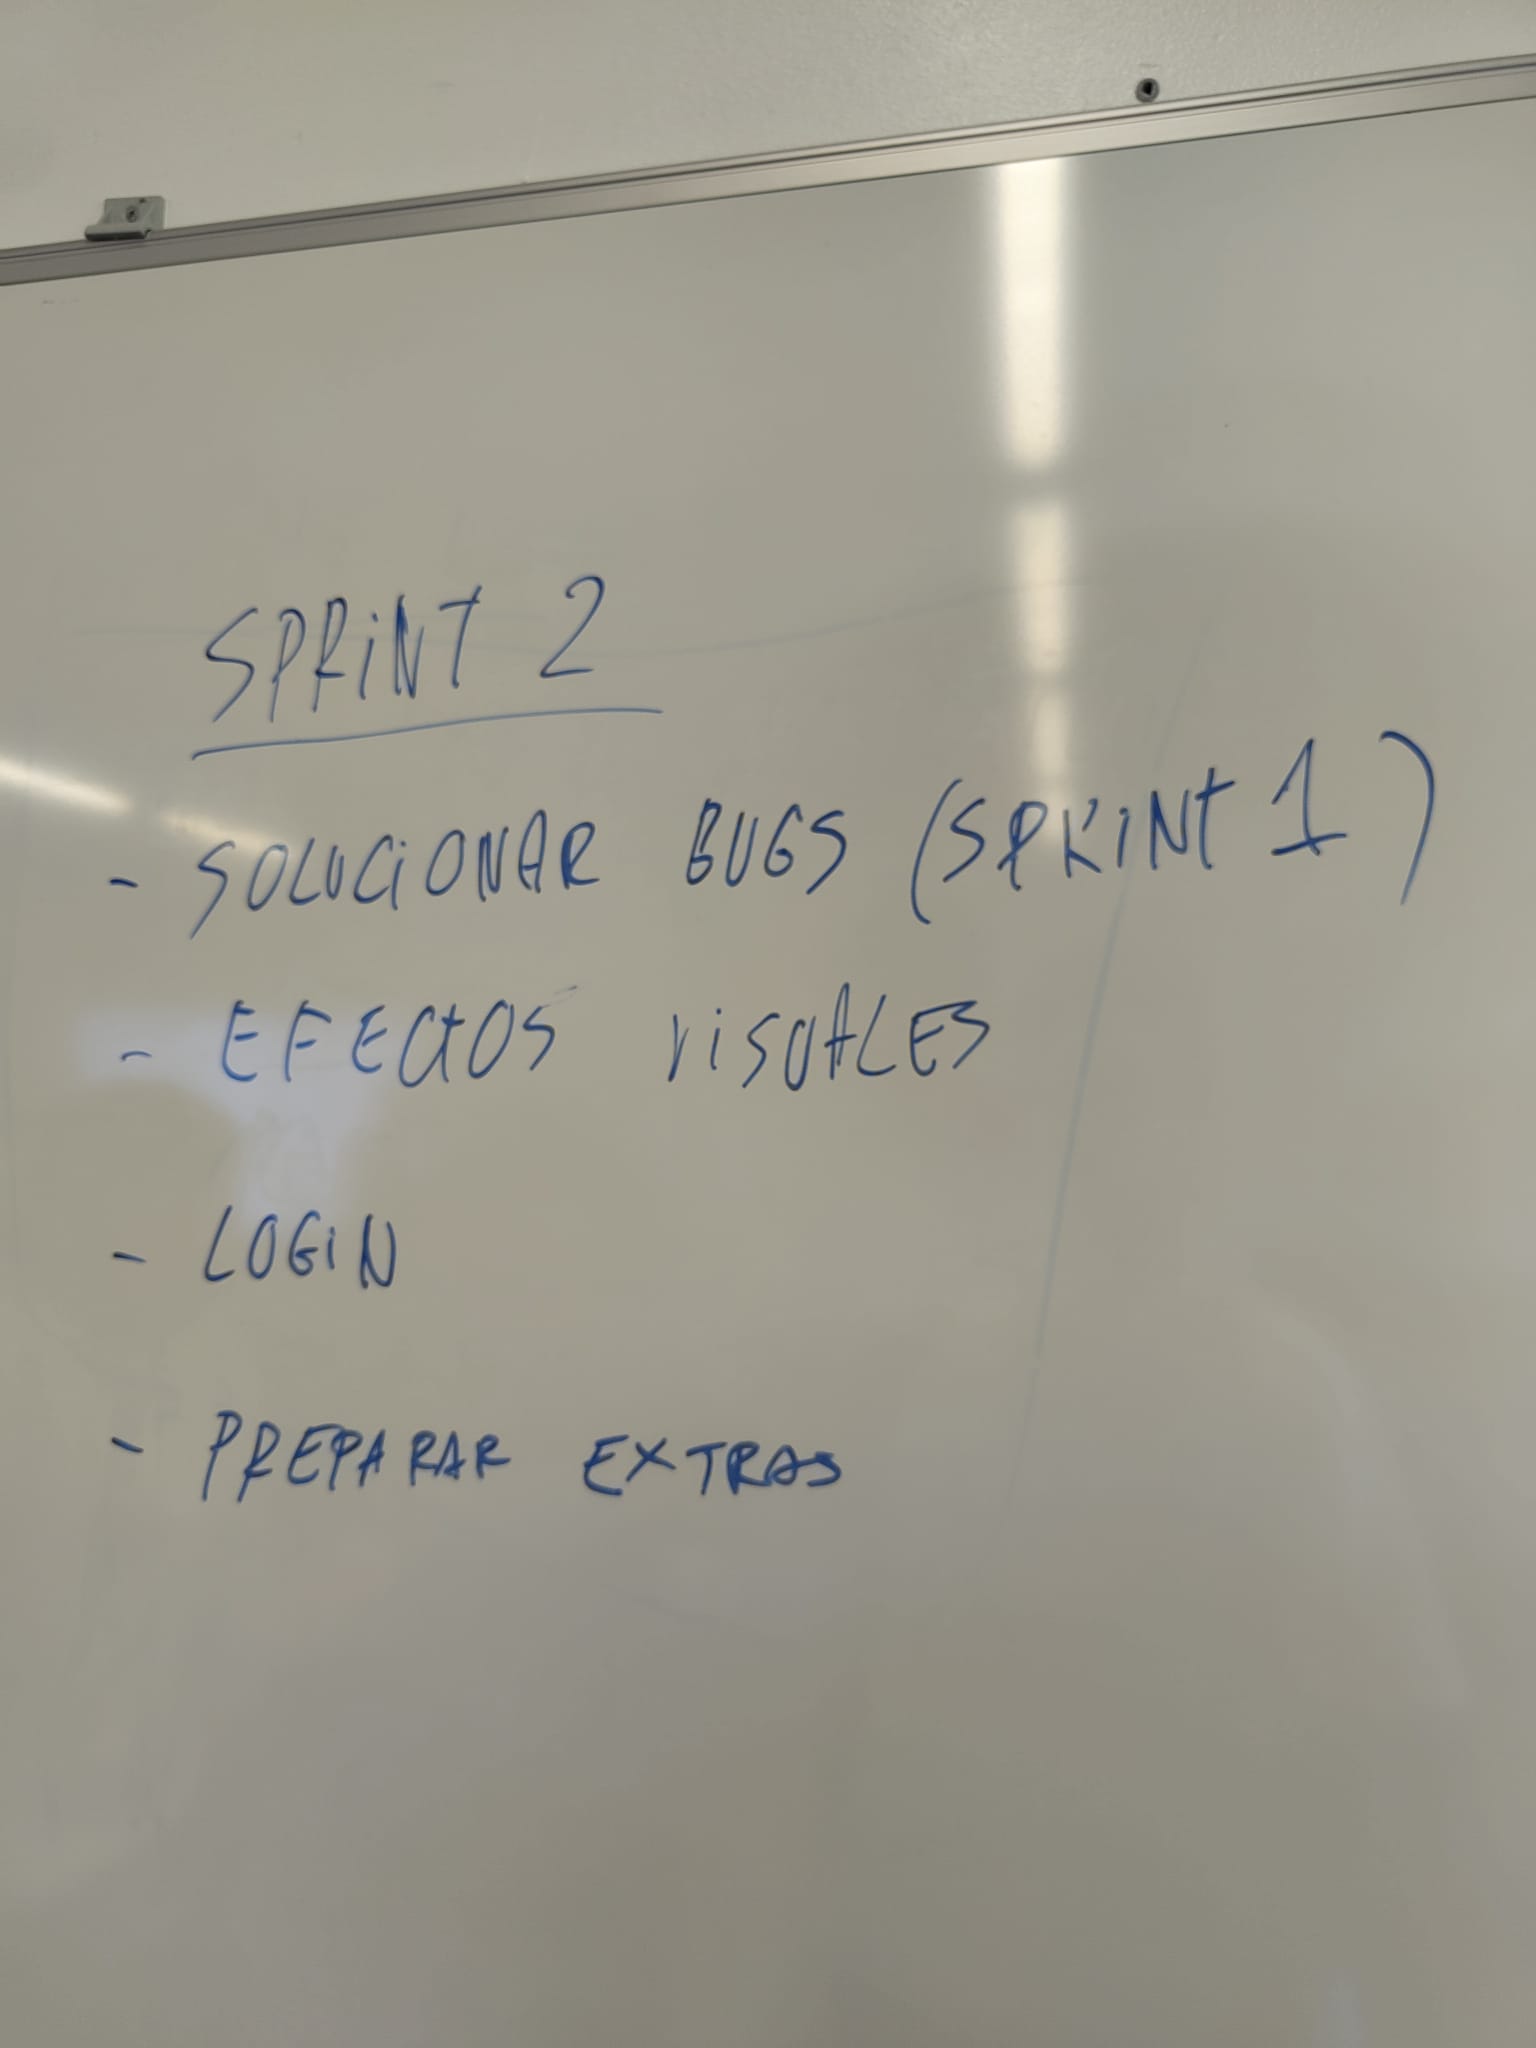 SPRINT 2
- SOLUCIONAR BUGS (SPRINT 1)
- EFECTOS VISUALES
- LOGIN
- PREPARAR EXTRAS